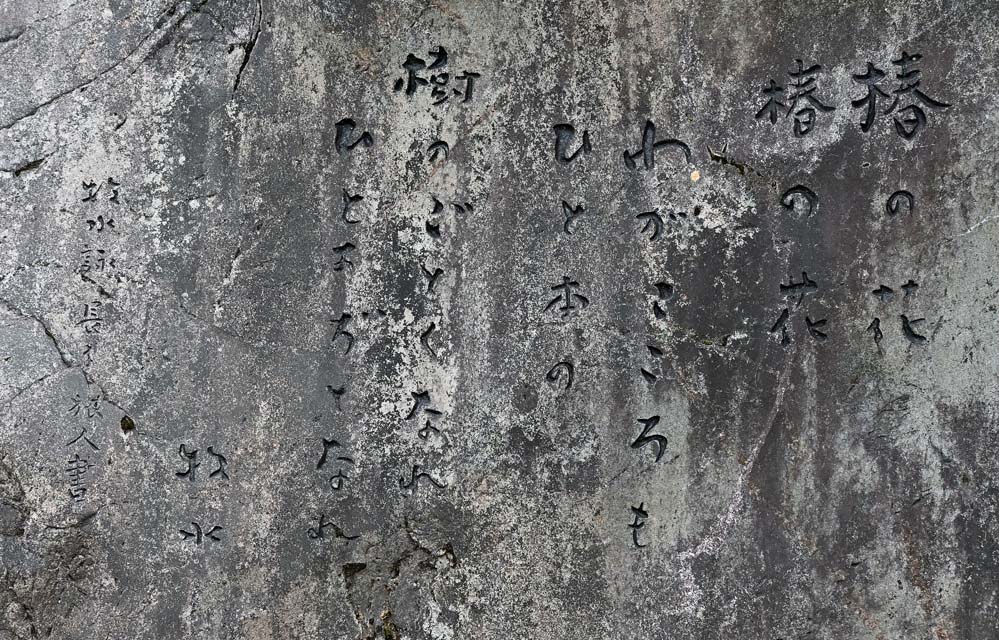 椿の花
椿の花
わがこころも
ひと本の
樹のごとくなれ
ひとすぢとなれ
牧水
牧水詠 長子 旅人書